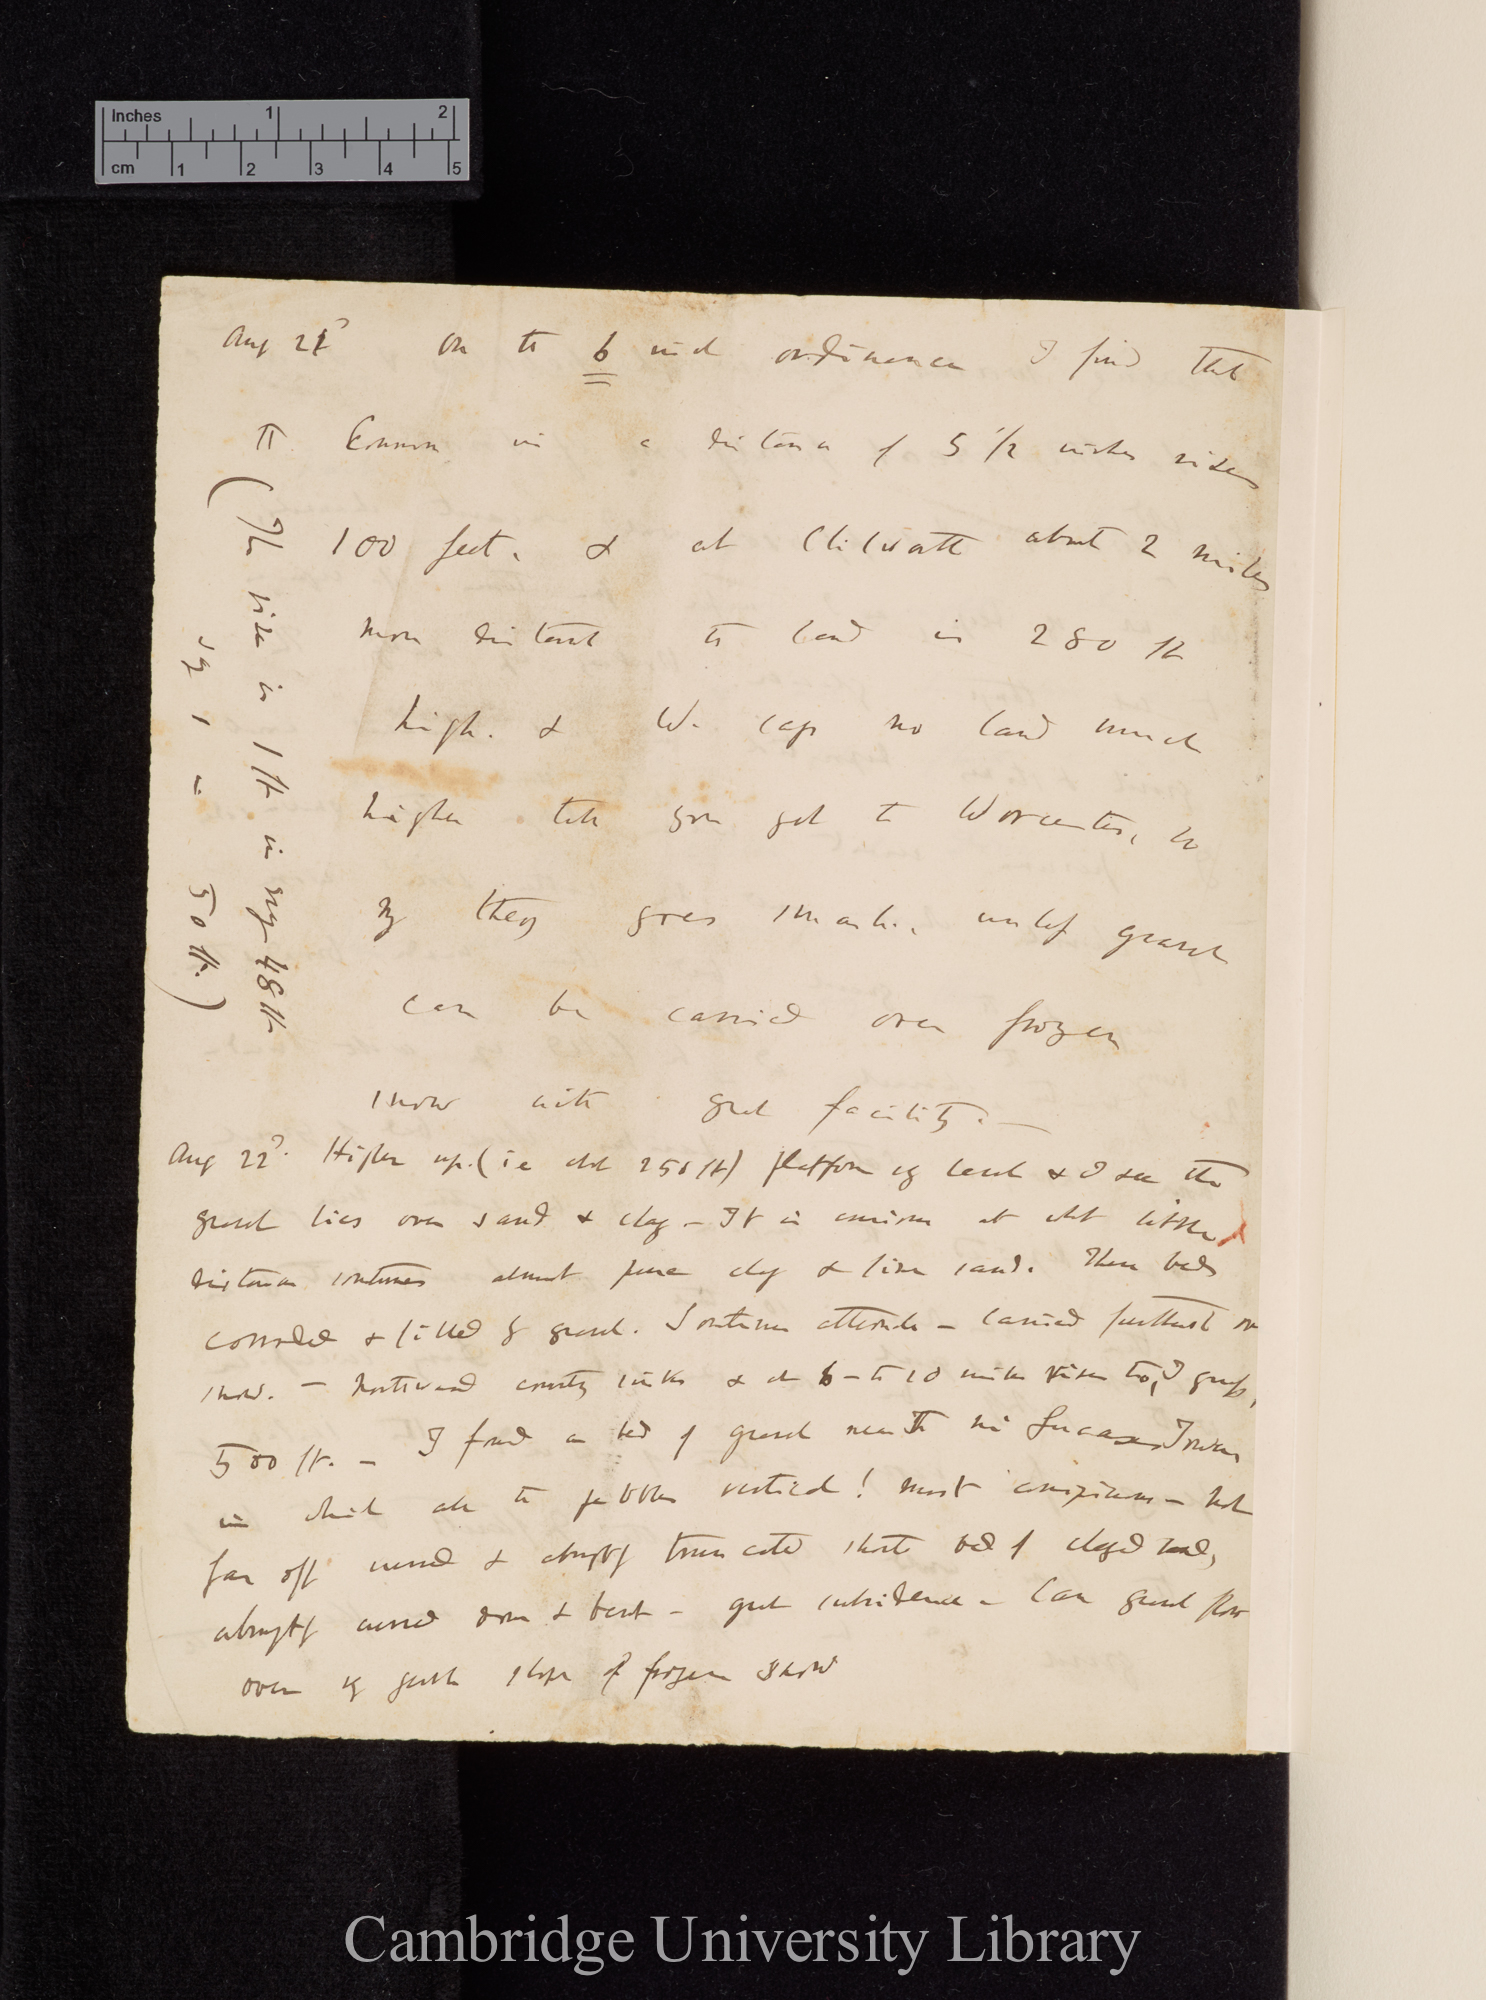 Inches 1 2
cm 1 2 3 4 5
Aug 21st On the 6 inch ordinance I find that
the Common in a distance of 5 1/2 inches rises
100 feet. & at Chilworth about 2 miles
more distant the land is 280 ft
high. & W. says no land much
higher till you get to Worcester, so
my theory goes smash, unless gravel
can be carried over frozen
snow with great facility. —
(The rise is 1 ft in say 48 ft
say 1 in 50 ft.)
Aug 22d. Higher up. (i.e abt 250 ft) platform of land & I see the
gravel lies over sand & clay — It is curious at what little
distance sometimes almost pure clay & fine sand. These beds
corroded & filled by gravel. Sometimes — carried furthest on
snow. — Northward country sinks & at 6 — to 10 miles rises to, I guess,
500 ft. — I found a bed of gravel near the
in which all the pebbles vertical! most conspicuous — Not
far off curved & abruptly truncated short bed of clayed sand,
abruptly curved down & bent — great subsidence — Can gravel flow
over gentle slope of frozen snow
Cambridge University Library